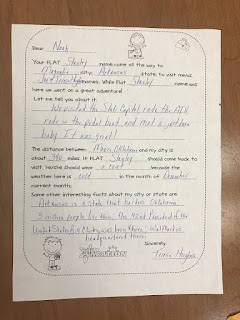 Dear Noah
Your FLAT Stanley name came all the way to
city, Arkansas state to visit me/us
name. While Flat Stanley name was
here we went on a great adventure!
Let me tell you about it.
We visited the State Capitol, rode the ATV,
rode in the pedal boat, and met a
baby. It was great!
The distance between Moore, Oklahoma and my city is
about 340 miles. If FLAT Stanley should come back to
visit, he/she should wear a coat because the
weather here is cold in the month of December
current month.
Some other interesting facts about my city or state are
Arkansas is a state that borders Oklahoma.
3 million people live there. The 42nd President of the
United States Bill Clinton was born there. Walmart is
headquartered there.
Sincerely,
Hughes